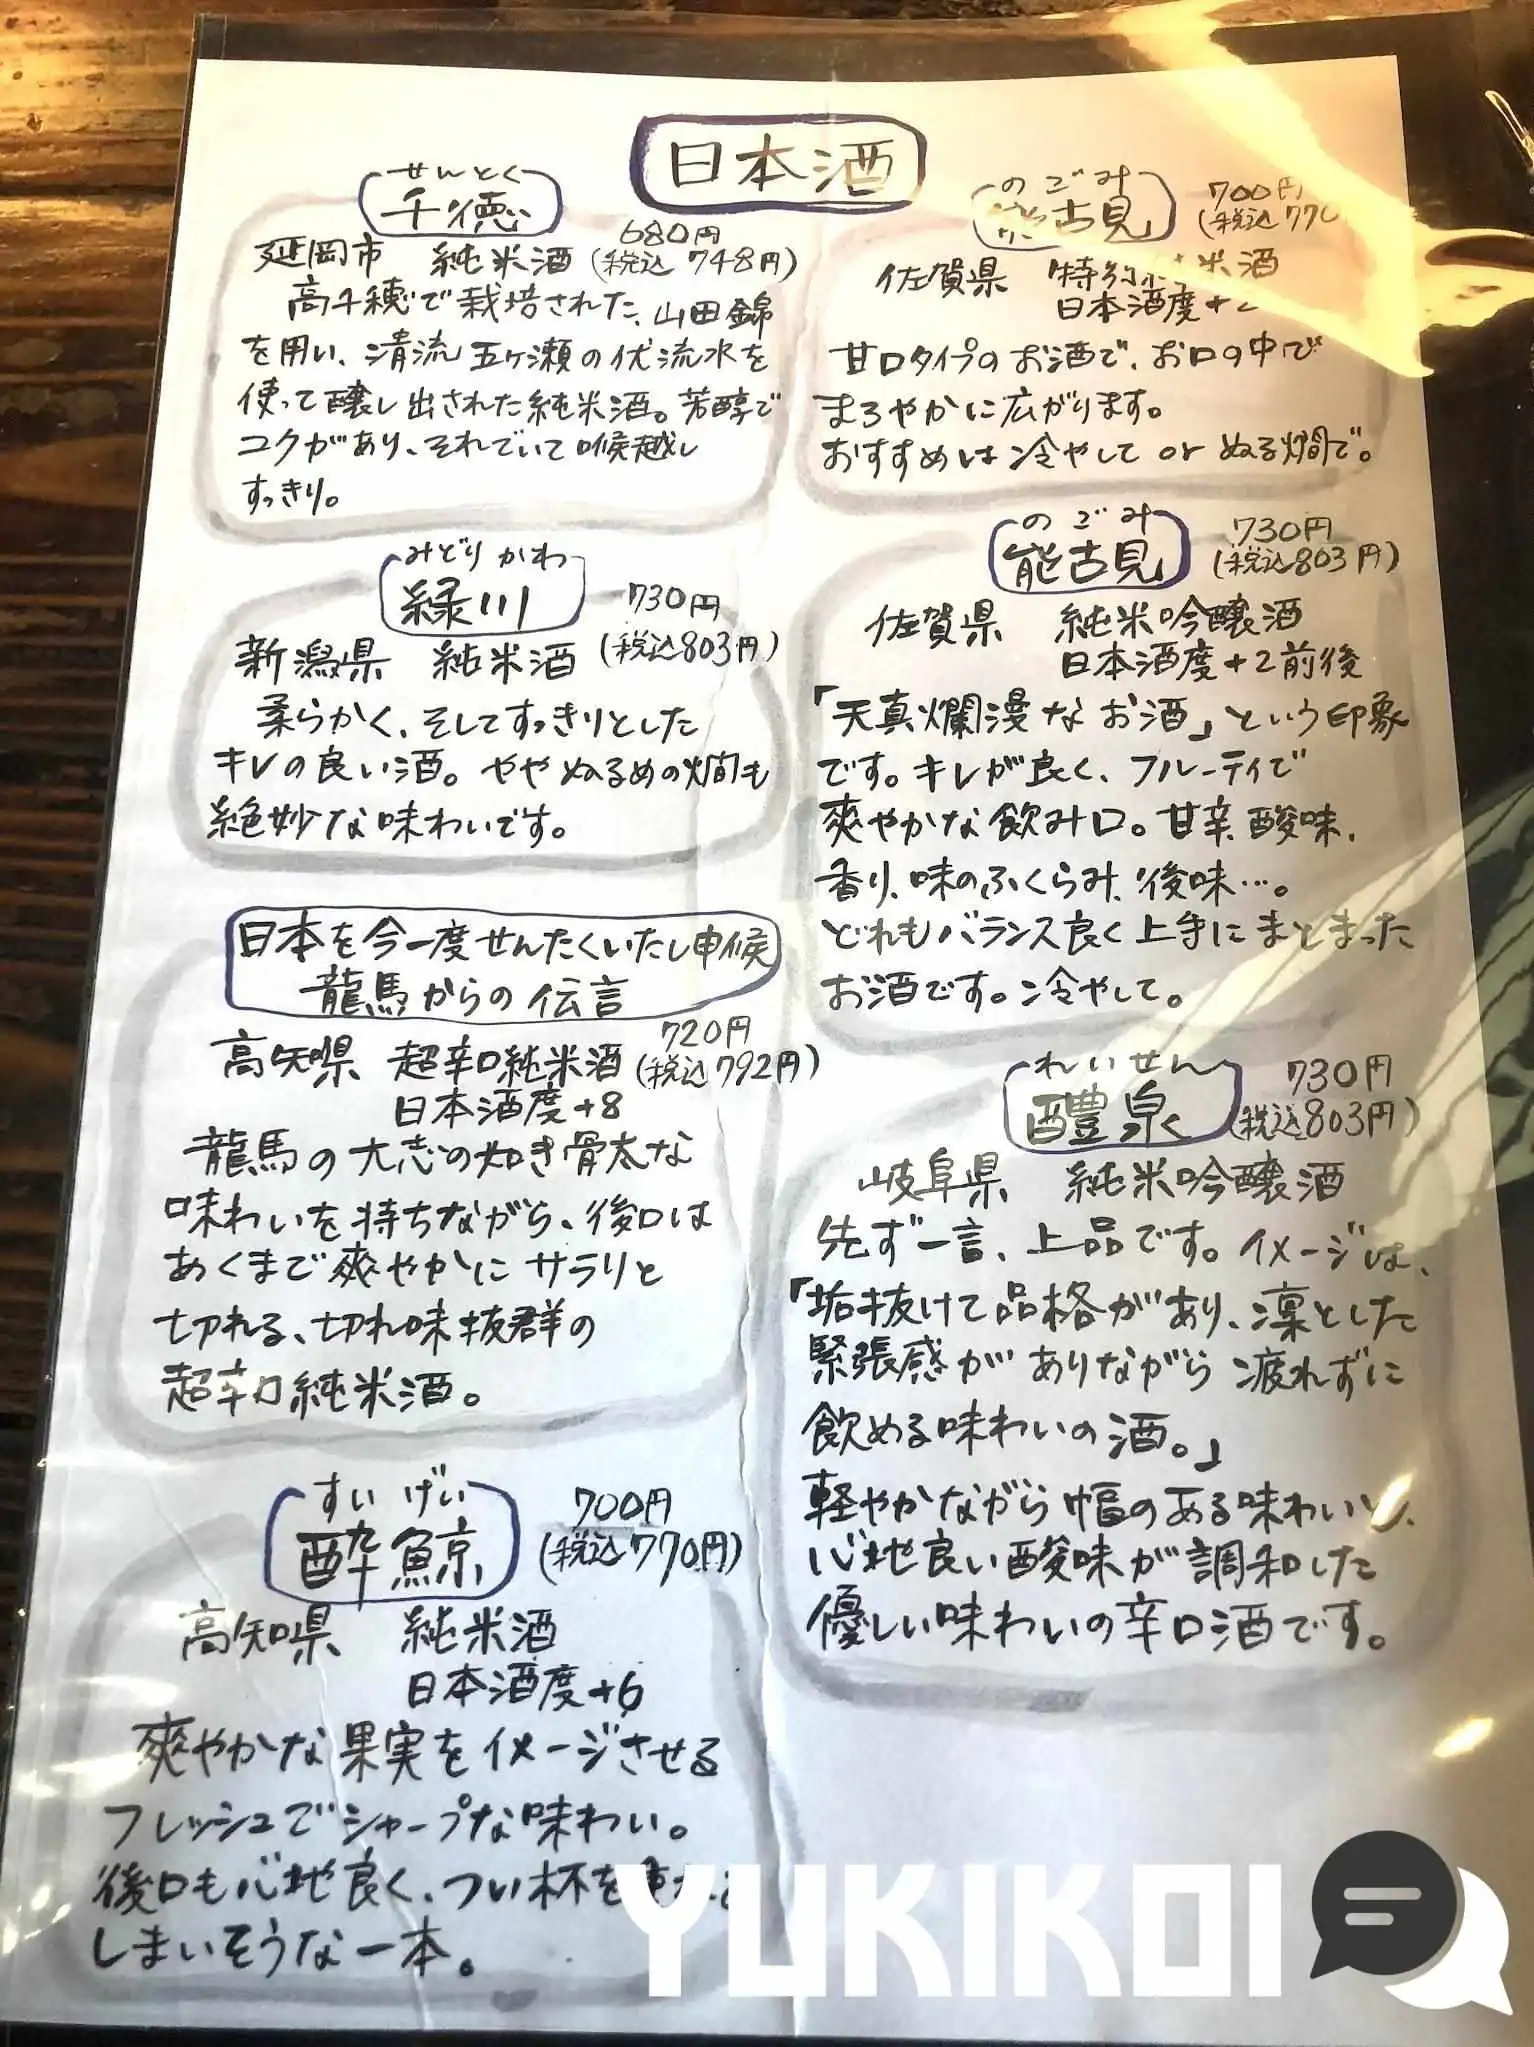 日本酒
せんとく
千徳
680円
延岡市 純米酒 (税込748円)
高千穂で栽培された、山田錦
を用い、清流五ヶ瀬の伏流水を
使って醸し出された純米酒。芳醇で
コクがあり、それでいて喉越し
すっきり。
みどりかわ
緑川
730円
新潟県 純米酒 (税込803円)
柔らかく、そしてすっきりとした
キレの良い酒。ややぬるめの燗も
絶妙な味わいです。
日本を今一度せんたくいたし申候
龍馬からの伝言
720円
高知県 超辛口純米酒 (税込792円)
日本酒度+8
龍馬の大志の如き骨太な
味わいを持ちながら、後口は
あくまで爽やかにサラリと
切れる、切れ味抜群の
超辛口純米酒。
すいげい
酔鯨
700円
(税込770円)
高知県 純米酒
日本酒度+6
爽やかな果実をイメージさせる
フレッシュでシャープな味わい。
後口も心地良く、つい杯を
しまいそうな一本。
のごみ
能古見
700円
(税込770
佐賀県 特別純米酒
日本酒度+2
甘口タイプのお酒で、お口の中で
まろやかに広がります。
おすすめは冷やして or ぬる燗で。
のごみ
能古見
730円
(税込803円)
佐賀県 純米吟醸酒
日本酒度+2前後
「天真爛漫なお酒」という印象
です。キレが良く、フルーティで
爽やかな飲み口。甘辛、酸味、
香り、味のふくらみ、後味…。
どれもバランス良く上手にまとまった
お酒です。冷やして。
れいせん
醴泉
730円
(税込803円)
岐阜県 純米吟醸酒
先ず一言、上品です。イメージは、
「垢抜けて品格があり、凛とした
緊張感がありながら疲れずに
飲める味わいの酒。」
軽やかながら幅のある味わいと、
心地良い酸味が調和した
優しい味わいの辛口酒です。
YUKIKOI